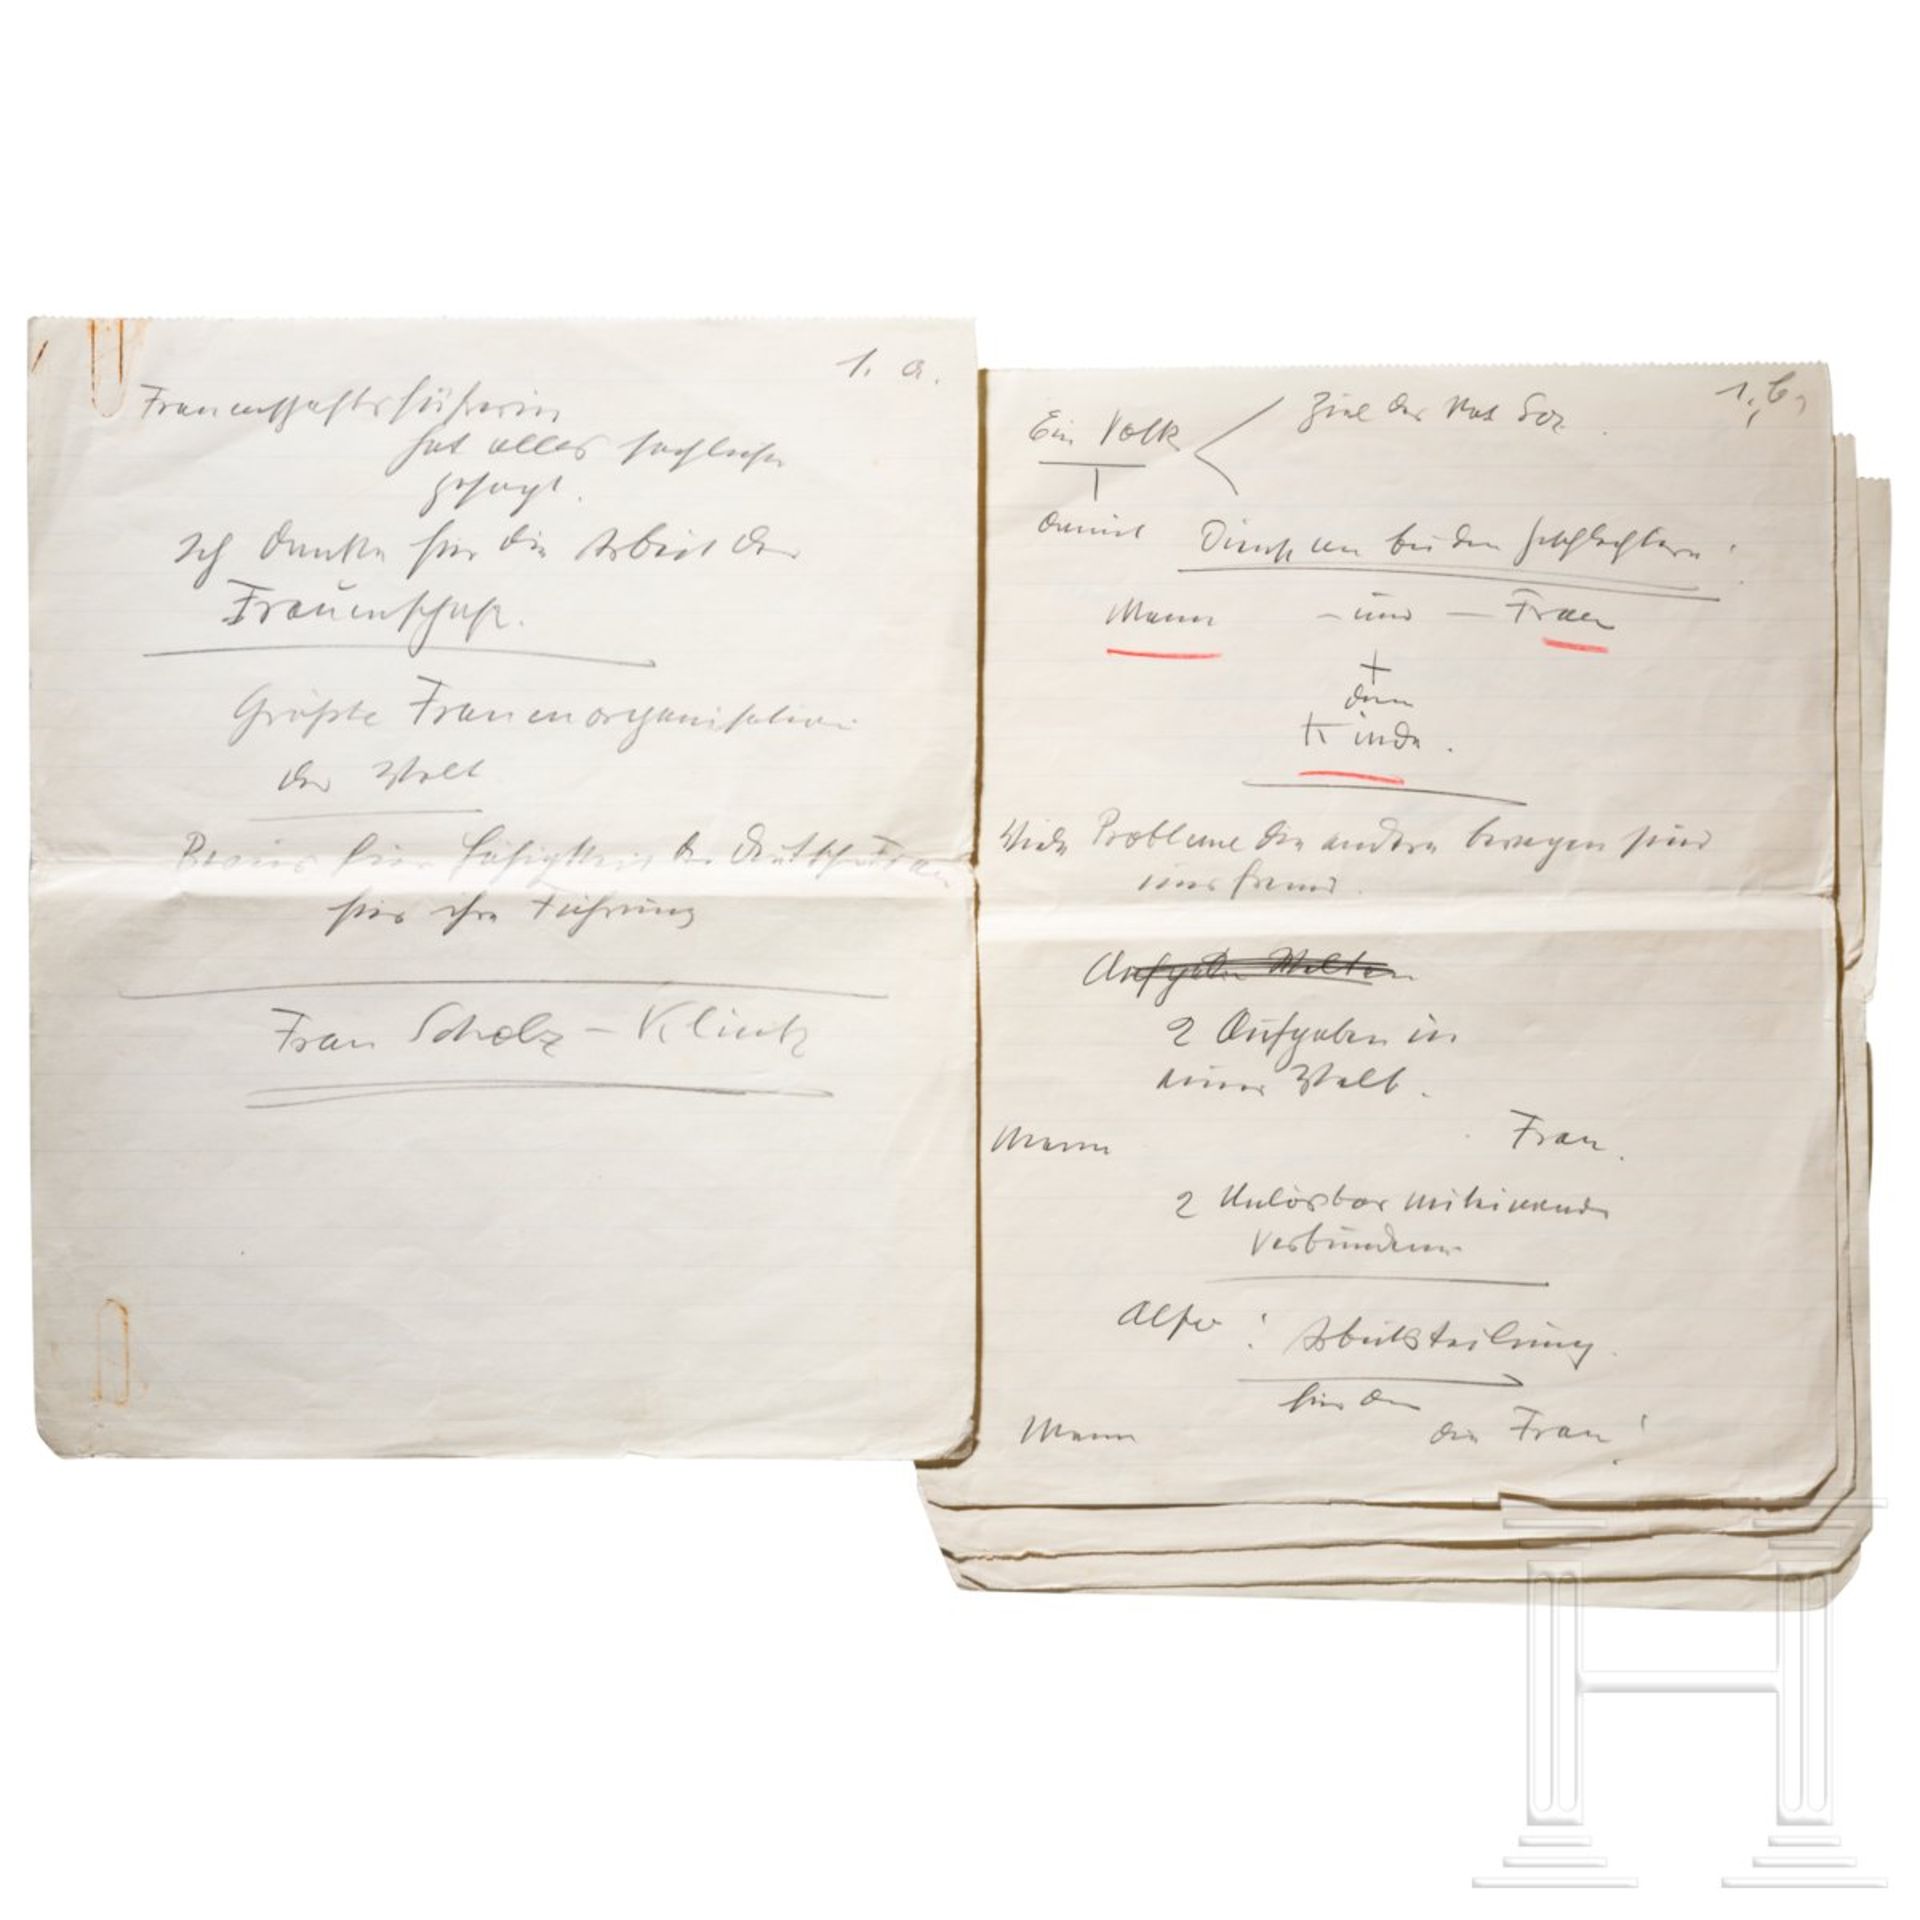 1. a.
Frauenschaftsführerin
hat alles sachliche
gesagt.
Ich danke für die Arbeit der
Frauenschaft.
Größte Frauenorganisation
der Welt
Beweis für Fähigkeit der Deutschen Frau
für ihre Führung
Frau Scholz-Klink
1. b,
Ein Volk
Ziel des Nat Soz.
damit
Dienst an beiden Geschlechtern!
Mann - und - Frau
+
dem
Kinde.
Viele Probleme die andere bewegen sind
uns fremd.
Aufgaben Welten
2 Aufgaben in
einer Welt.
Mann Frau.
2 Unlösbar miteinander
Verbunden
Also: Arbeitsteilung.
für den
Mann die Frau!